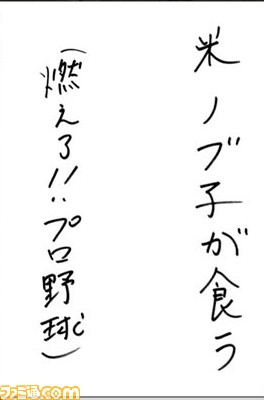 米ノブ子が食う
(燃えろ!!プロ野球)
ファミ通com